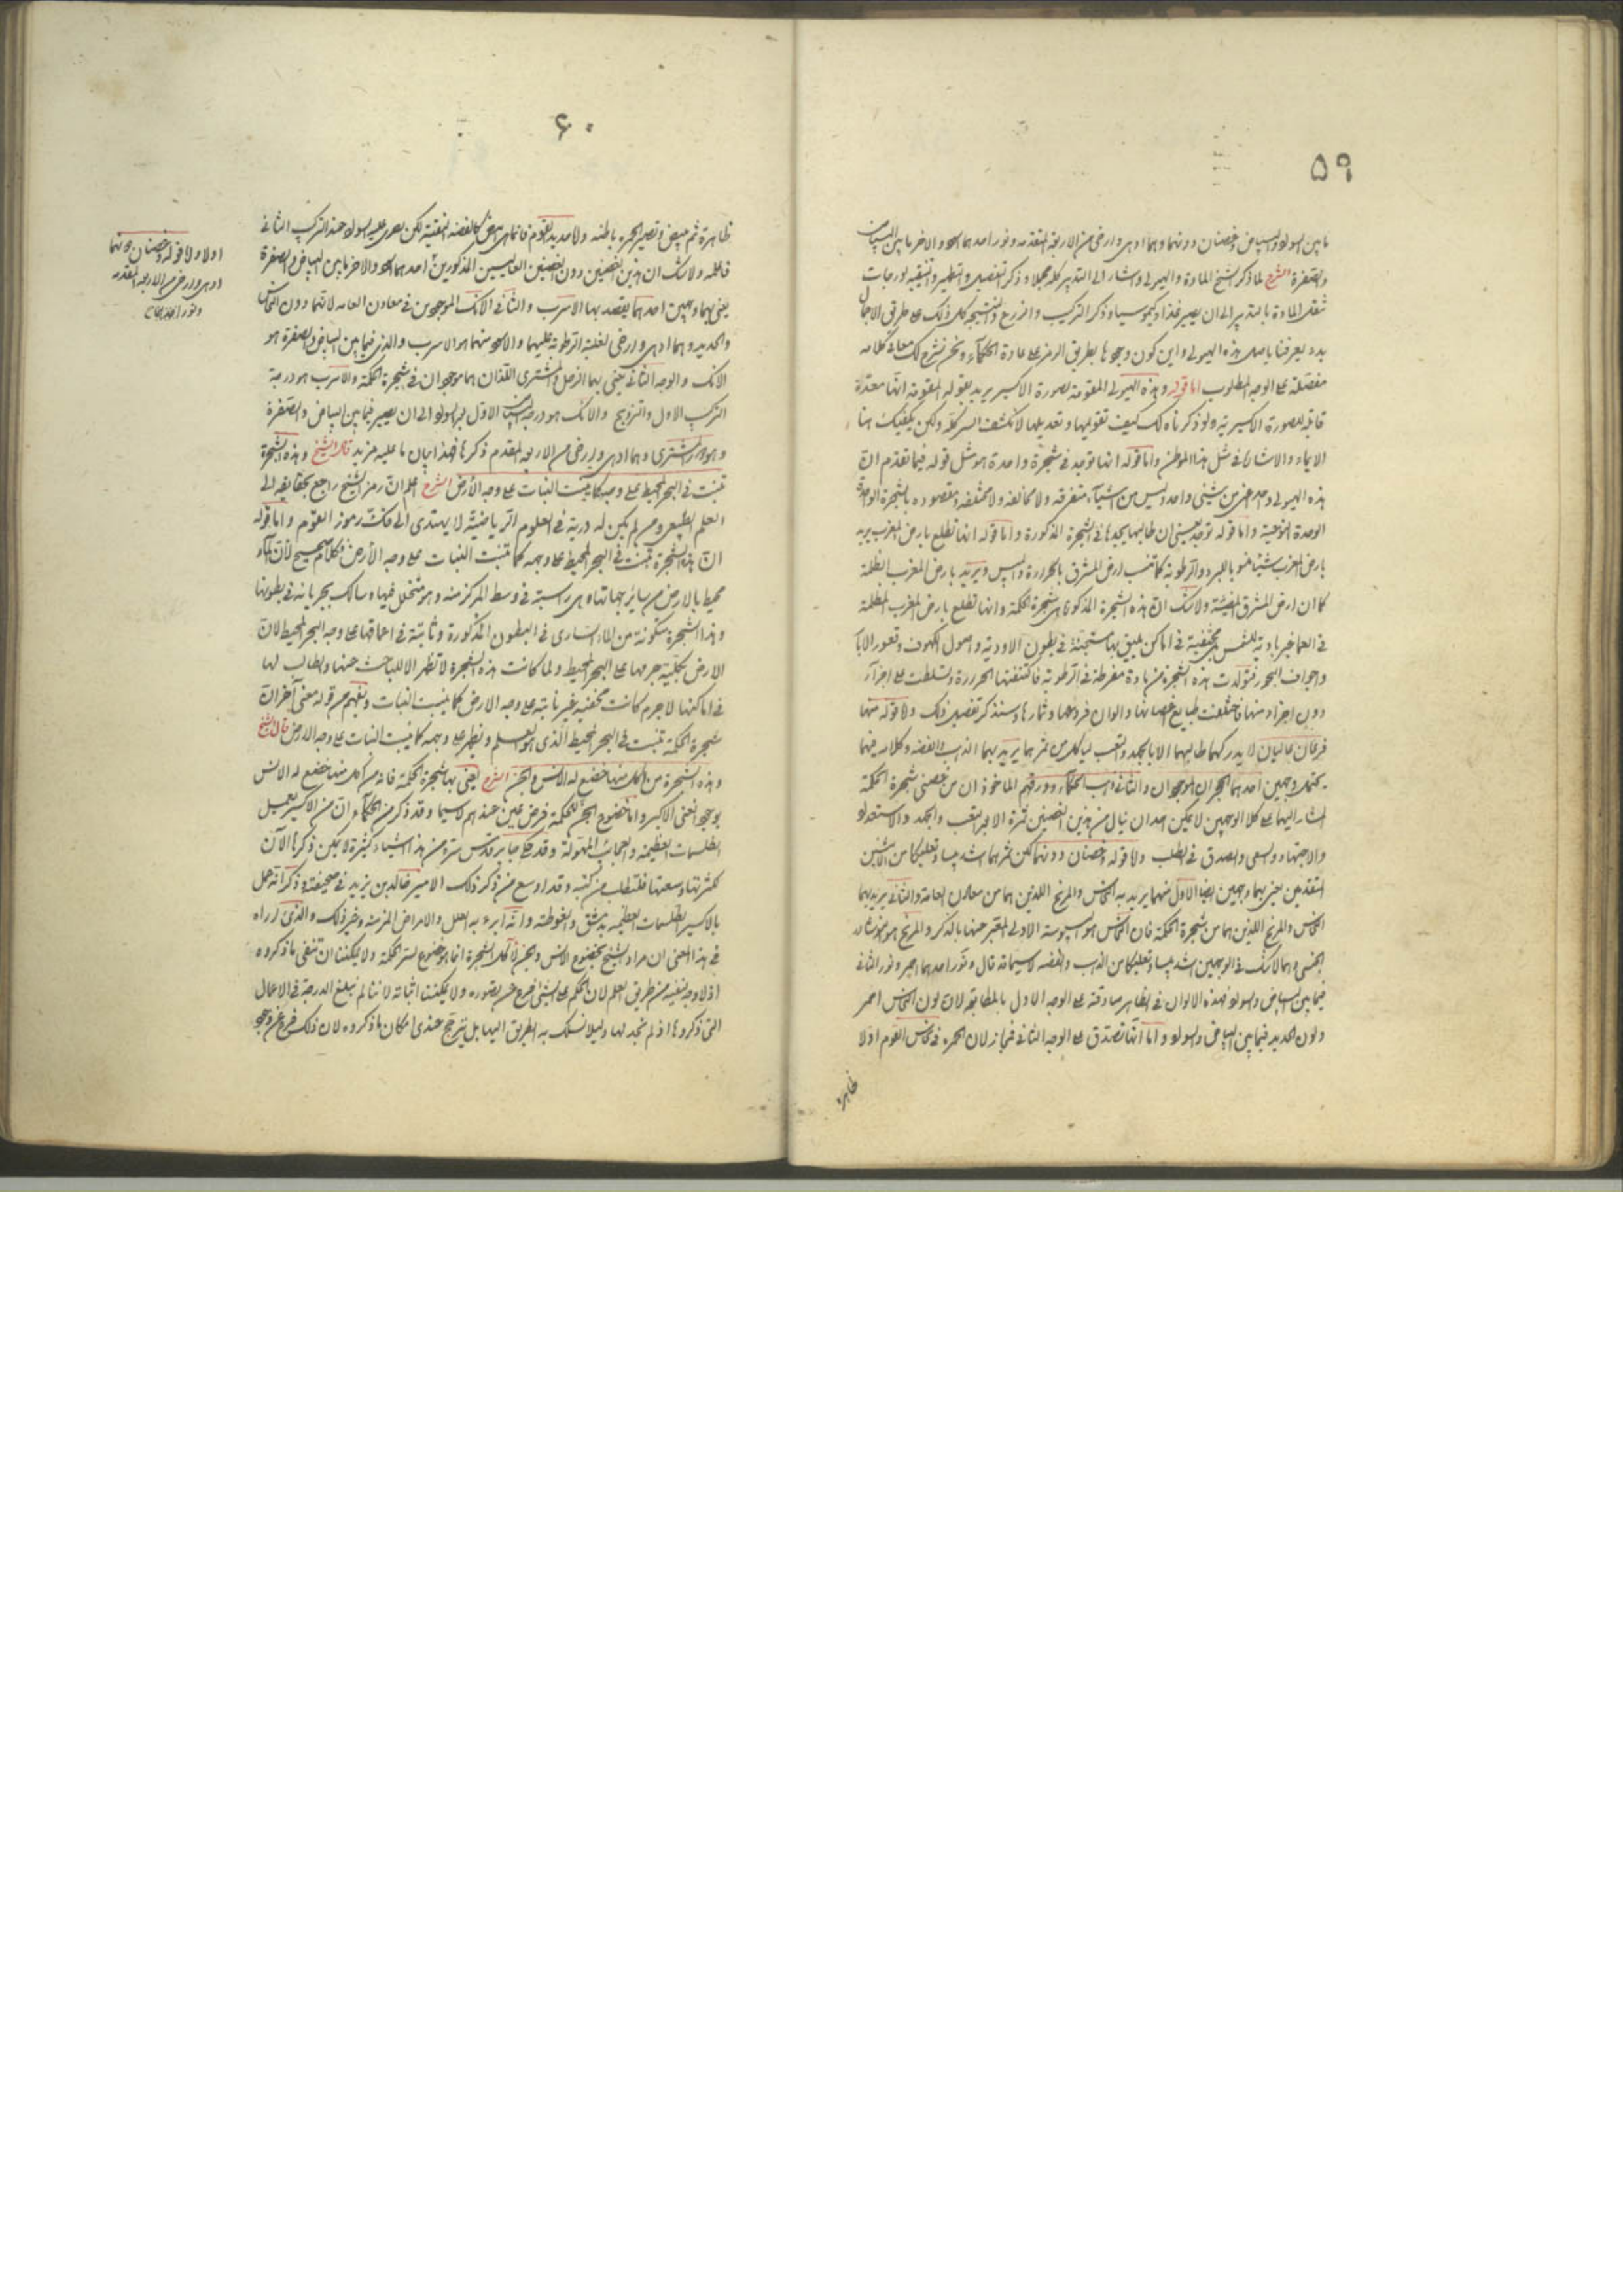 ۵۹
ما بين السواد والبياض وغصنان دونهما وهما ادهى وارخى من الاربعة المتقدمه ونور احدهما اسود والاخر ما بين البياض
والصفرة الشرح لما ذكر الشيخ المادة والهيولى واشار الى التدبير كله مجملا وذكر التفصيل والتطهير والتنقيه لورجات
ثقل المادة بالتدبير الى ان يصير غذاء وكيموسيا وذكر التركيب والزرع والنتيجه كل ذلك على طريق الاجمال
يعرفنا باصل هذه الهيولى واين يكون وجودها بطريق الرمز على عادة الحكماء ونحن نشرح لك معانى كلامه
مفصلة على الوجه المطلوب اما قوله وهذه الهيولى المقومة لصورة الاكسير يريد بقوله المقومة انها معدة
قابلة للصورة الاكسيرية ولو ذكرنا لك كيفية تقويمها وتعديلها لانكشف السر كله ولكن يكفيك هنا
الايماء والاشارة فى مثل هذا الموطن واما قوله انها توجد فى شجرة واحدة هو مثل قوله فيما تقدم ان
هذه الهيولى واحد من شيئى واحد ليس من اشياء متفرقه ولا مخالفه ولا مختلفه ومقصوده بالشجرة الواحدة
الوحدة النوعية واما قوله توجد يعنى ان طالبها يجدها فى الشجرة المذكورة واما قوله انها تطلع بارض المغرب يريد
بارض المغرب شيئا منسوبا للبرد والرطوبة كما تنسب ارض المشرق بالحرارة واليبس ويريد بارض المغرب الظلمة
كما ان ارض المشرق المضيئة ولا شك ان هذه الشجرة المذكورة هى شجرة الحكمة وانها تطلع بارض المغرب المظلمة
فى العما غير بادية للشمس مختفية فى اماكن يليق بها مستجنة فى بطون الاودية واصول الكهوف وقعور الابار
واجواف البحور فتولدت هذه الشجرة من مادة مفرطة فى الرطوبة فاكتنفتها الحرارة وتسلطت على اجزاء
دون اجزاء منها فاختلفت طبايع اغصانها والوان فروعها وثمارها وسنذكر تفصيل ذلك واما قوله منها
فرعان عاليان لا يدركهما طالبهما الا بالجهد والتعب لياكل من ثمرهما يريد بهما الذهب والفضه وكلامه فيهما
يحتمل وجهين احدهما الحجران الموجودان والثانى ذهب الحكماء وورقهم الماخوذ ان من غصنى شجرة الحكمة
المشار اليهما على كلا الوجهين لا يمكن احد ان ينال من هذين الغصنين ثمرة الا بعد التعب والجهد والاستعداد
والاجتهاد والسعى والصدق فى الطلب واما قوله وغصنان دونهما لكن ثمرهما اشد يبسا وتعليكا من الاثنين
المتقدمين يعنى بهما وجهين ايضا الاول منهما يريد به النحاس والمريخ اللذين هما من معادن العامة والثانى يريد بهما
النحاس والمريخ اللذين هما من شجرة الحكمة فان النحاس هو اليبوسة الاولى المعبر عنها بالذكر والمريخ هو
وهما لا شك فى الوجهين اشد يبسا وتعليكا من الذهب والفضه لا سيما قد قال ونور احدهما احمر ونور الثانى
فيما بين البياض والسواد فهذه الالوان فى الظاهر صادقة على الوجه الاول بالمطابقة لان لون النحاس احمر
ولون الحديد فيما بين البياض والسواد واما انها تصدق على الوجه الثانى فجاز لان الحمرة فى نحاس القوم اولا
ظاهرة
۶۰
ظاهرة ثم يبيض وتصير الحمره باطنه واما حديد القوم فانما هى كالفضة النقية لكن عليه السواد عند التركيب الثانى
فاعلمه ولا شك ان هذين الغصنين دون الغصنين العاليين المذكورين احدهما اسود والاخر ما بين البياض والصفرة
يعنى بهما وجهين احدهما يقصد بها الاسرب والثانى الانك الموجودين فى معادن العامه لانهما دون النحاس
والحديد وهما ادهى وارخى لغلبة الرطوبة عليهما والاسود منهما هو الاسرب والذى فيما بين البياض والصفرة هو
الانك والوجه الثانى يعنى بهما الزحل والمشترى اللذان هما موجودان فى شجرة الحكمة والاسرب هو درجة
التركيب الاول والتزويج والانك هو درجة البياض الاول بعد السواد الى ان يصير فيما بين البياض والصفرة
وهو المشترى وهما ادهى وارخى من الاربعه المقدم ذكرها فهذا بيان ما عليه مزيد قال الشيخ وهذه الشجرة
تنبت فى البحر المحيط على وجهه كما تنبت النبات على وجه الأرض الشرح اعلم ان رمز الشيخ راجع بحقايقه الى
العلم الطبيعى ومن لم يكن له دربة فى العلوم الرياضية لا يهتدى الى فك رموز القوم واما قوله
ان هذه الشجرة تنبت فى البحر المحيط على وجهه كما تنبت النبات على وجه الأرض فكلام صحيح لأن الماء
محيط بالارض من ساير جهاتها وهى راسبة فى وسط المركز منه وهو متخلل فيها وسالك بجريانه فى بطونها
وهذا الشجرة متكونة من الماء السارى فى البطون المذكورة وثابتة فى اعماقها على وجه البحر المحيط لان
الارض بكليتة جرمها على البحر المحيط ولما كانت هذه الشجرة لا تظهر الا للباحث عنها والطالب لها
فى اماكنها لا جرم كانت مختفيه غير نابتة على وجه الارض كما ينبت النبات ويفهم من قوله معنى آخر ان
شجرة الحكمة تنبت فى البحر المحيط الذى هو العلم وتظهر على وجهه كما ينبت النبات على وجه الارض قال الشيخ
وهذه الشجرة من اكل منها خضع له الانس والجن الشرح يعنى بها شجرة الحكمة فانه من اكل منها خضع له الانس
بوجود الاكسير واما خضوع الجن للحكمة فرض عين عندهم لا سيما وقد ذكر من الحكماء ان من الاكسير يعمل
الطلسمات العظيمه والعجائب المهولة وقد حكى جابر قدس سره من هذه اشياء كثيرة لا يمكن ذكرها الآن
لكثرتها وسعتها فلتطلب من كتبه وقد اوسع من ذكر ذلك الامير خالد بن يزيد فى صحيفته وذكر انه عمل
بالاكسير الطلسمات العظيمه بدمشق والغوطة وانه ابرء به العلل والامراض المزمنه وغير ذلك والذى اراه
فى هذا المعنى ان مراد الشيخ بخضوع الانس والجن لآكل الشجرة انما هو خضوع لستر الحكمة ولا يمكننا ان ننفى ما ذكروه
اذ لا وجه لنفيه من طريق العلم لان الحكم على الشيئ فرع عن تصوره ولا يمكننا اثباته لاننا لم نبلغ الدرجة فى الاعمال
التى ذكروها اذ لم نجد لها دليلا نسلك به الطريق اليها بل يترجح عندى امكان ما ذكروه لان ذلك فرع عن وجود
اولا واما قوله وغصنان دونهما
ادهى وارخى من الاربعه المتقدمه
ونور احدهما